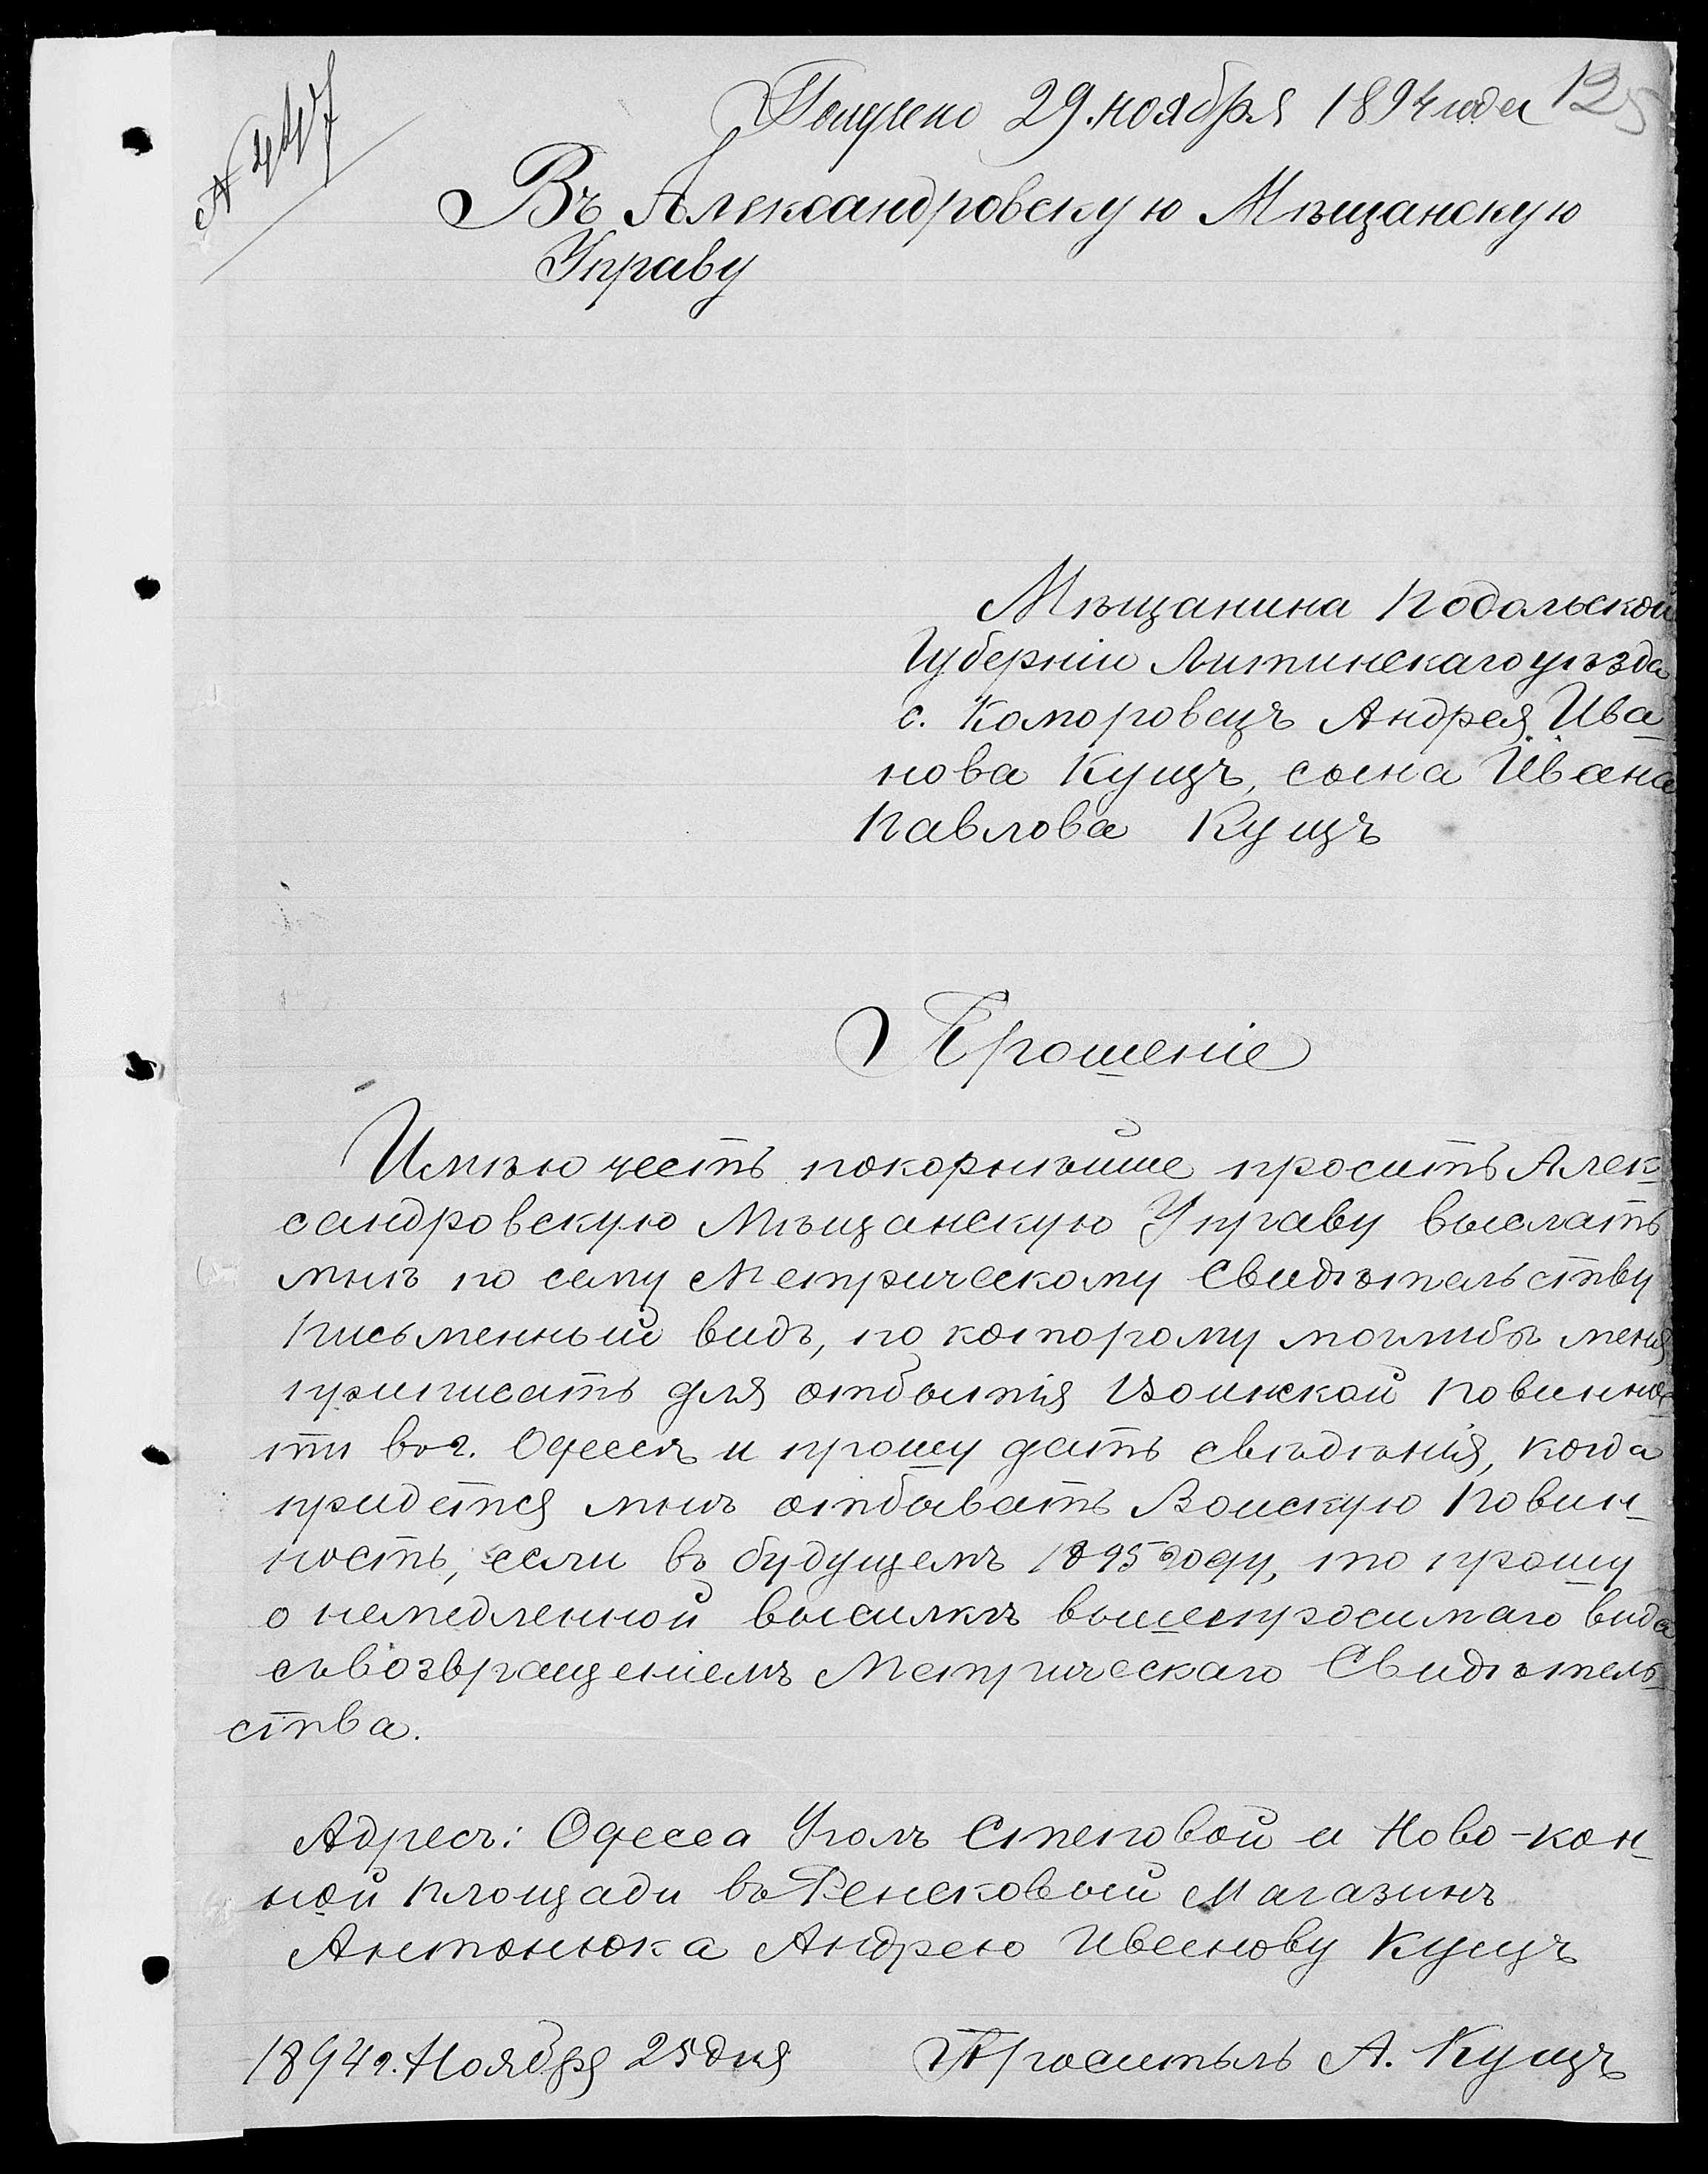 Получено 29 ноября 1894 года 125
Въ Александровскую Мѣщанскую
Управу
Мѣщанина Подольской
Губерніи Литинскаго уѣзда
с. Коморовецъ Андрея Ива-
нова Кущъ, сына Ивана
Павлова Кущъ
Прошеніе
Имѣю честь покорнѣйше просить Алек-
сандровскую Мѣщанскую Управу выслать
мнѣ по сему Метрическому Свидѣтельству
письменный видъ, по которому моглибъ меня
приписать для отбытія Воинской повиннос-
ти во г. Одессѣ и прошу дать свѣдѣнія, когда
придется мнѣ отбывать Воискую Повин-
ность, если въ будущемъ 1895 году, то прошу
о немедленной высилкѣ вышепросимаго вида
съ возвращеніемъ Метрическаго Свидѣтель-
ства.
Адресъ: Одесса Уголъ Степовой и Ново-кон-
ной площади въ Ренсковый Магазинъ
Антонюка Андрею Иванову Кущъ
1894 г. Ноября 25 дня Проситель А. Кущъ